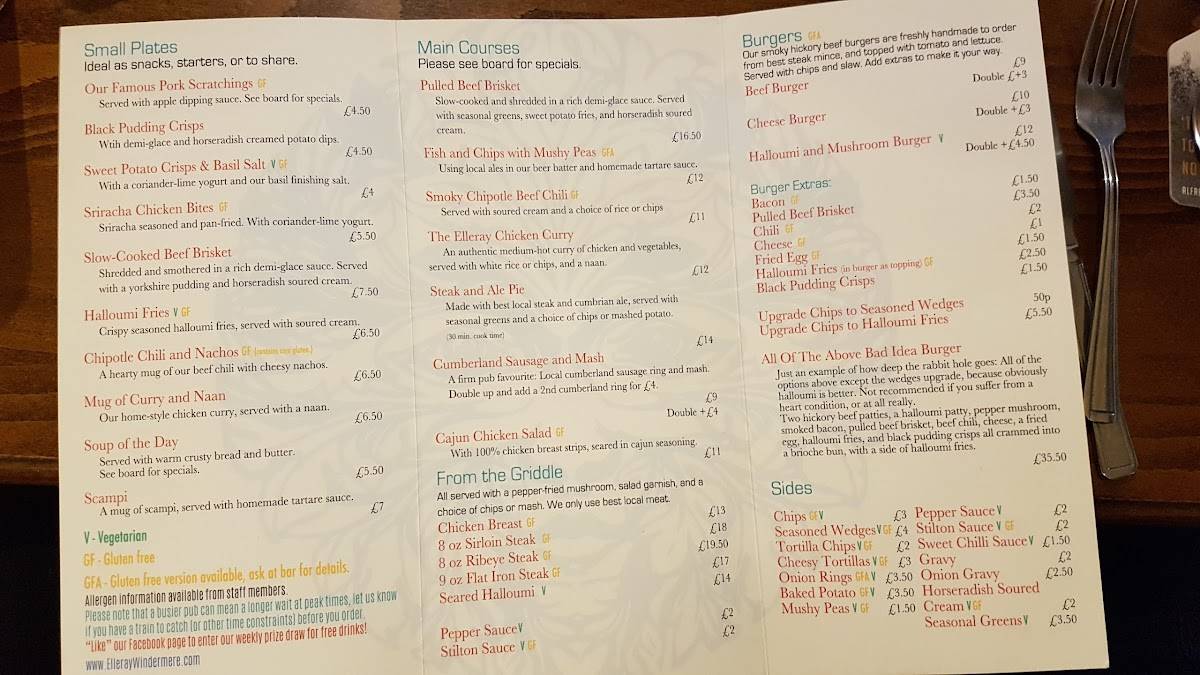 Small Plates
Ideal as snacks, starters, or to share.
Our Famous Pork Scratchings GF
Served with apple dipping sauce. See board for specials.
£4.50
Black Pudding Crisps
Wtih demi-glace and horseradish creamed potato dips.
£4.50
Sweet Potato Crisps & Basil Salt V GF
With a coriander-lime yogurt and our basil finishing salt.
£4
Sriracha Chicken Bites GF
Sriracha seasoned and pan-fried. With coriander-lime yogurt.
£5.50
Slow-Cooked Beef Brisket
Shredded and smothered in a rich demi-glace sauce. Served
with a yorkshire pudding and horseradish soured cream.
£7.50
Halloumi Fries V GF
Crispy seasoned halloumi fries, served with soured cream.
£6.50
Chipotle Chili and Nachos GF (contains corn gluten.)
A hearty mug of our beef chili with cheesy nachos.
£6.50
Mug of Curry and Naan
Our home-style chicken curry, served with a naan.
£6.50
Soup of the Day
Served with warm crusty bread and butter.
See board for specials.
£5.50
Scampi
A mug of scampi, served with homemade tartare sauce.
£7
V - Vegetarian
GF - Gluten free
GFA - Gluten free version available, ask at bar for details.
Allergen information available from staff members.
Please note that a busier pub can mean a longer wait at peak times, let us know
if you have a train to catch (or other time constraints) before you order.
"Like" our Facebook page to enter our weekly prize draw for free drinks!
www.EllerayWindermere.com
Main Courses
Please see board for specials.
Pulled Beef Brisket
Slow-cooked and shredded in a rich demi-glace sauce. Served
with seasonal greens, sweet potato fries, and horseradish soured
cream.
£16.50
Fish and Chips with Mushy Peas GFA
Using local ales in our beer batter and homemade tartare sauce.
£12
Smoky Chipotle Beef Chili GF
Served with soured cream and a choice of rice or chips
£11
The Elleray Chicken Curry
An authentic medium-hot curry of chicken and vegetables,
served with white rice or chips, and a naan.
£12
Steak and Ale Pie
Made with best local steak and cumbrian ale, served with
seasonal greens and a choice of chips or mashed potato.
(30 min. cook time)
£14
Cumberland Sausage and Mash
A firm pub favourite: Local cumberland sausage ring and mash.
Double up and add a 2nd cumberland ring for £4.
£9
Double +£4
Cajun Chicken Salad GF
With 100% chicken breast strips, seared in cajun seasoning.
£11
From the Griddle
All served with a pepper-fried mushroom, salad garnish, and a
choice of chips or mash. We only use best local meat.
Chicken Breast GF £13
8 oz Sirloin Steak GF £18
8 oz Ribeye Steak GF £19.50
9 oz Flat Iron Steak GF £17
Seared Halloumi V £14
Pepper Sauce V £2
Stilton Sauce V GF £2
Burgers GFA
Our smoky hickory beef burgers are freshly handmade to order
from best steak mince, and topped with tomato and lettuce.
Served with chips and slaw. Add extras to make it your way.
Beef Burger £9
Double £+3
Cheese Burger £10
Double +£3
Halloumi and Mushroom Burger V £12
Double +£4.50
Burger Extras:
Bacon GF £1.50
Pulled Beef Brisket £3.50
Chili GF £2
Cheese GF £1
Fried Egg GF £1.50
Halloumi Fries (in burger as topping) GF £2.50
Black Pudding Crisps £1.50
Upgrade Chips to Seasoned Wedges 50p
Upgrade Chips to Halloumi Fries £5.50
All Of The Above Bad Idea Burger
Just an example of how deep the rabbit hole goes: All of the
options above except the wedges upgrade, because obviously
halloumi is better. Not recommended if you suffer from a
heart condition, or at all really.
Two hickory beef patties, a halloumi patty, pepper mushroom,
smoked bacon, pulled beef brisket, beef chili, cheese, a fried
egg, halloumi fries, and black pudding crisps all crammed into
a brioche bun, with a side of halloumi fries.
£35.50
Sides
Chips GF V £3
Seasoned Wedges V GF £4
Tortilla Chips V GF £2
Cheesy Tortillas V GF £3
Onion Rings GFA V £3.50
Baked Potato GF V £3.50
Mushy Peas V GF £1.50
Pepper Sauce V £2
Stilton Sauce V GF £2
Sweet Chilli Sauce V £1.50
Gravy £2
Onion Gravy £2.50
Horseradish Soured
Cream V GF £2
Seasonal Greens V £3.50